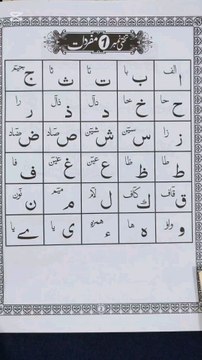 تختی نمبر 1 مفردات
الف ا با ب تا ت ثا ث جیم ج
حا ح خا خ دال د ذال ذ را ر
زا ز سین س شین ش صاد ص ضاد ض
طا ط ظا ظ عین ع غین غ فا ف
قاف ق کاف ك لام ل میم م نون ن
واؤ و ها ه همزه ء یا ی یا ے